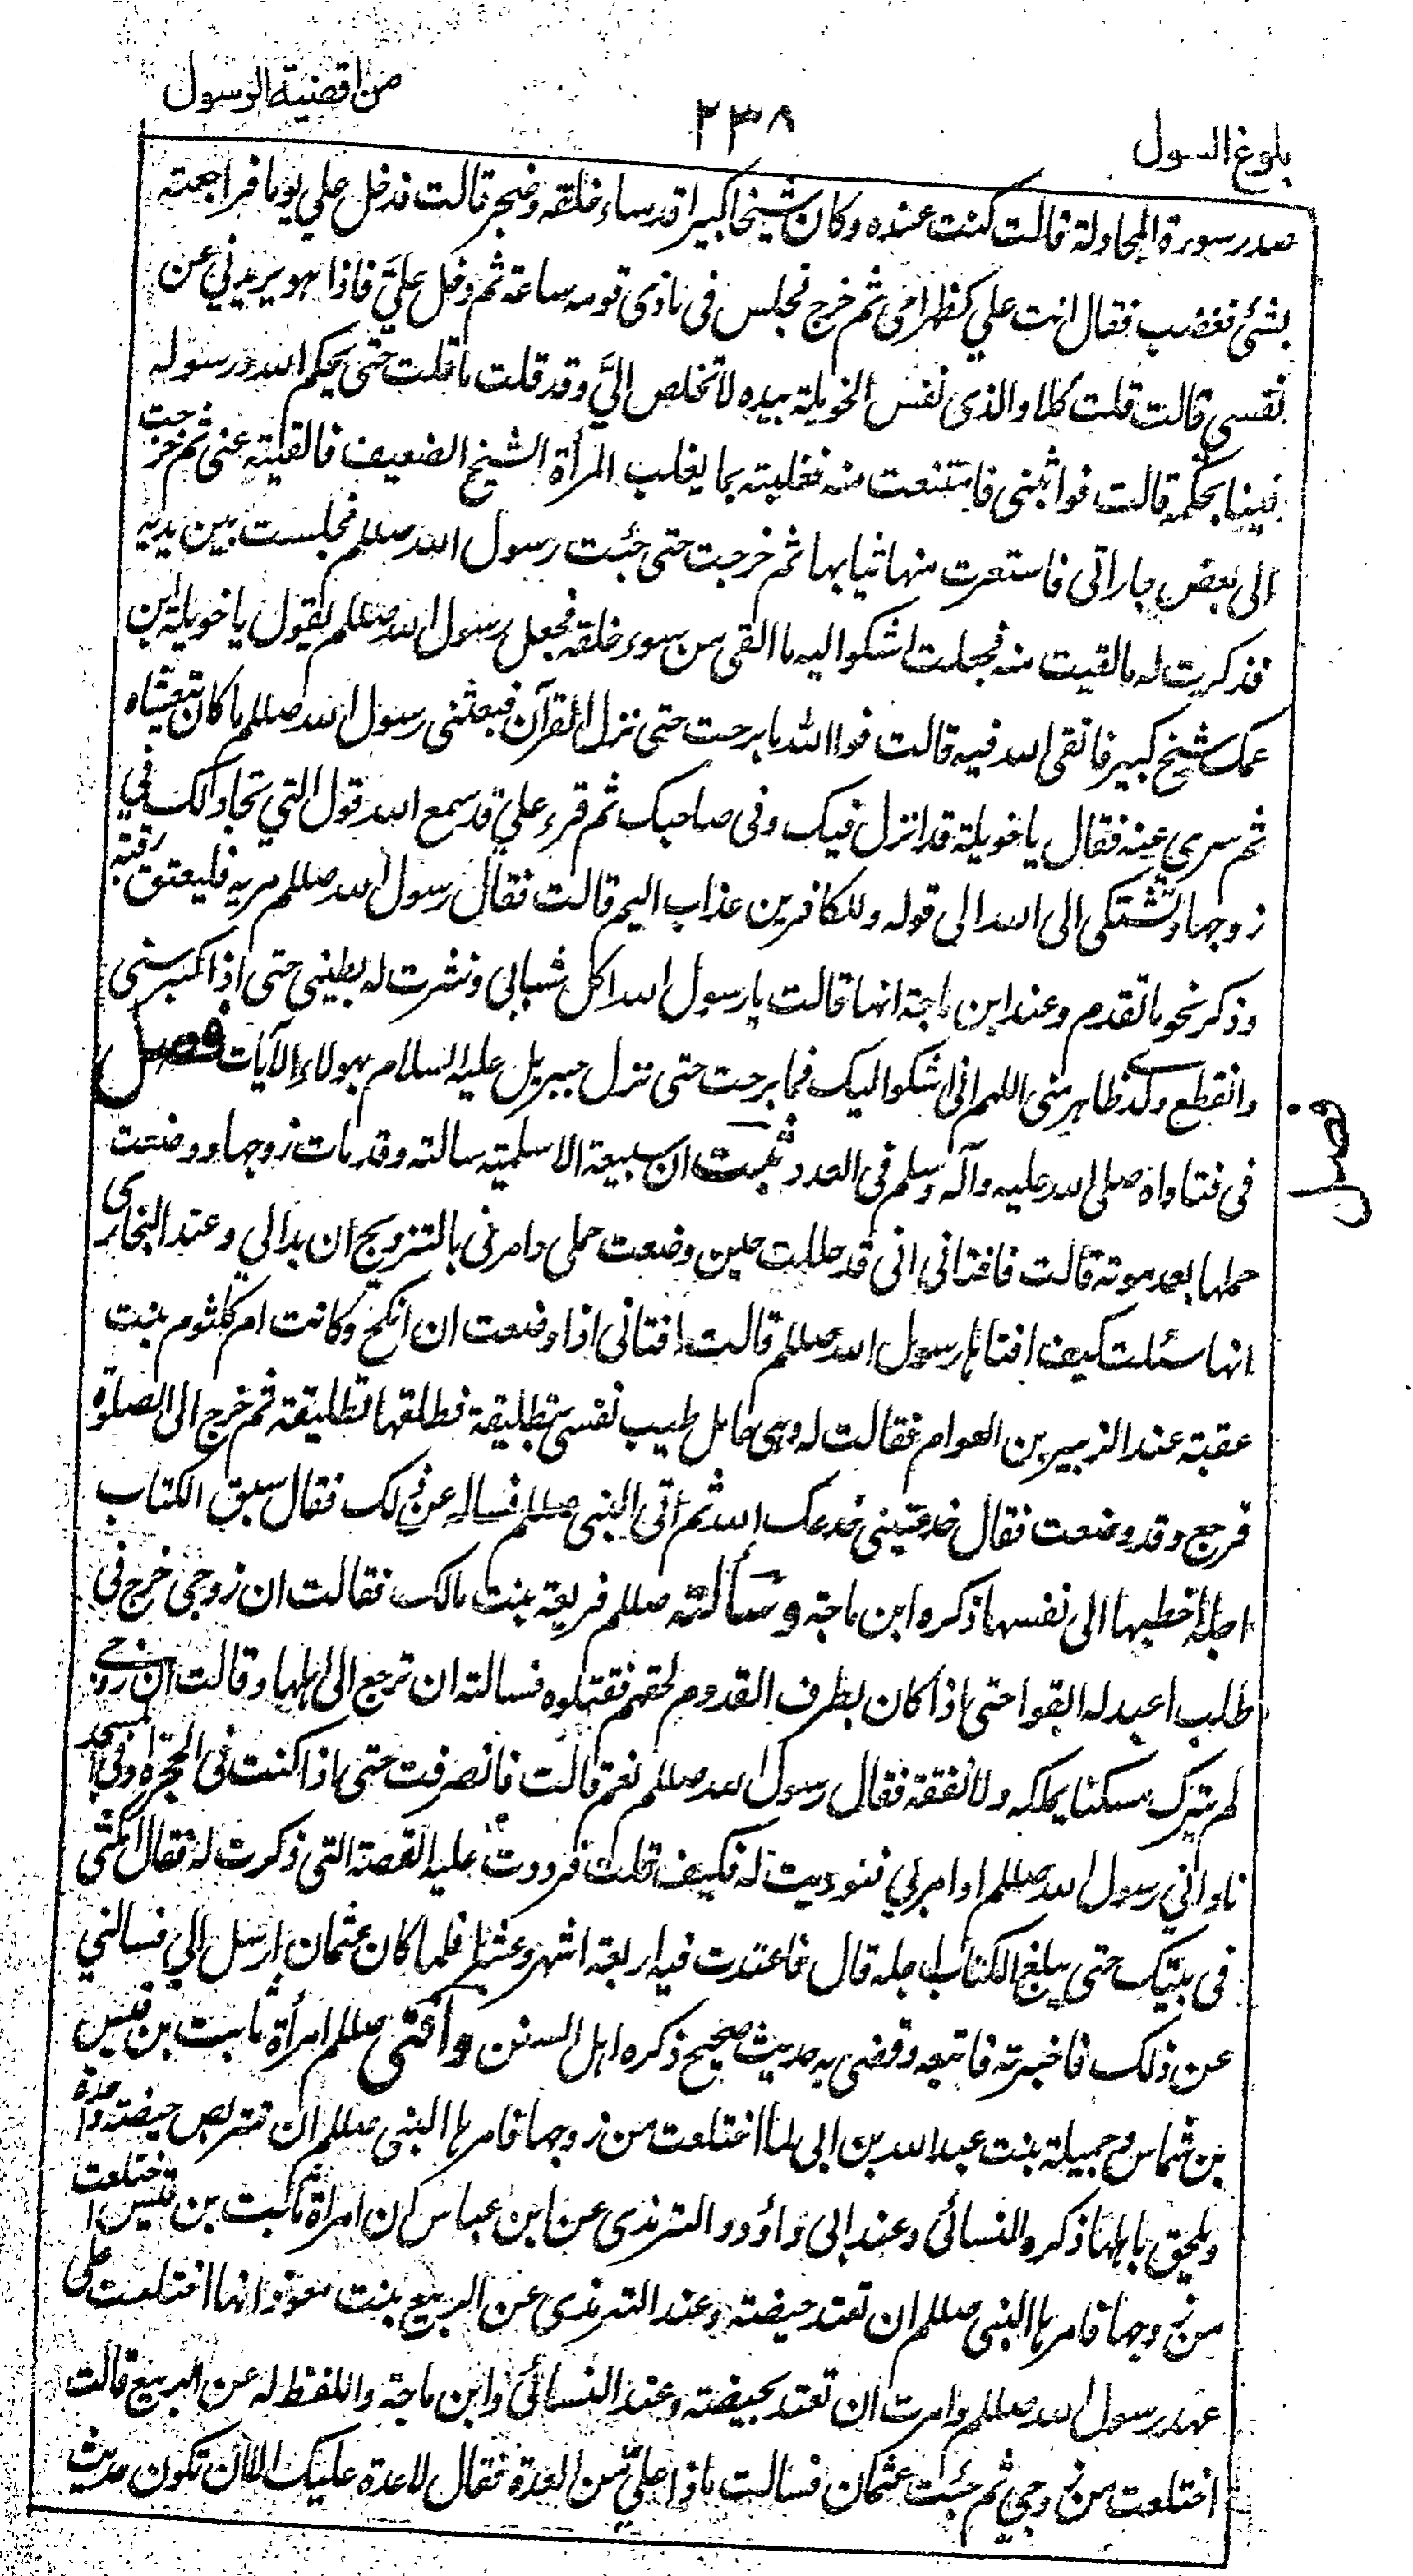 بلوغ السول
٢٣٨
من اقضية الرسول
صدر سورة المجادلة قالت كنت عنده وكان شيخا كبيرا قد ساء خلقه وضجر قالت فدخل علي يوما فراجعته
بشئ فغضب فقال انت علي كظهر امي ثم خرج فجلس في نادي قومه ساعة ثم دخل عليّ فاذا هو يريدني عن
نفسي قالت قلت كلا والذي نفس الخويلة بيده لا تخلص اليّ وقد قلت ما قلت حتى يحكم الله ورسوله
فينا بحكمه قالت فواثبني فامتنعت منه فغلبته بما يغلب المرأة الشيخ الضعيف فالقيته عني ثم خرجت
الى بعض جاراتي فاستعرت منها ثيابها ثم خرجت حتى جئت رسول الله صللم فجلست بين يديه
فذكرت له ما لقيت منه فجعلت اشكوا اليه ما القى من سوء خلقه فجعل رسول الله صللم يقول يا خويلة ابن
عمك شيخ كبير فاتقى الله فيه قالت فوا الله ما برحت حتى نزل القرآن فبعثني رسول الله صللم ما كان تيغشاه
ثم سرى عنه فقال يا خويلة قد انزل فيك وفي صاحبك ثم قرء علي قد سمع الله قول التي تجادلك في
زوجها وتشتكي الى الله الى قوله وللكافرين عذاب اليم قالت فقال رسول الله صللم مريه فليعتق رقبة
وذكر نحو ما تقدم وعند ابن ماجة انها قالت يا رسول الله اكل شبابي ونشرت له بطيني حتى اذا كبر سني
وانقطع ولدي ظاهر مني اللهم اني اشكوا اليك فما برحت حتى نزل جبريل عليه السلام بهولاء الآيات فصل
فصل
في فتاواه صلى الله عليه وآله وسلم في العدد ثبت ان سبيعة الاسلمية سالته وقد مات زوجها ووضعت
حملها بعد موته قالت فافتاني اني قد حللت حين وضعت حملي وامرني بالتزويج ان بدا لي وعند البخاري
انها سئلت كيف افتاها رسول الله صللم قالت افتاني اذا وضعت ان انكح وكانت ام كلثوم بنت
عقبة عند الزبير بن العوام فقالت له وهي حامل طيب نفسي بتطليقة فطلقها تطليقة ثم خرج الى الصلوة
فرجع وقد وضعت فقال خدعتيني خدعك الله ثم اتى النبي صللم فساله عن ذلك فقال سبق الكتاب
اجله اخطبها الى نفسها ذكره ابن ماجة وسألته صللم فريعة بنت مالك فقالت ان زوجي خرج في
طلب اعبد له ابقوا حتى اذا كان بطرف القدوم لحقهم فقتلوه فسالته ان ترجع الى اهلها وقالت ان زوجي
لم يترك مسكنا يملكه ولا نفقة فقال رسول الله صللم نعم قالت فانصرفت حتى اذا كنت في الحجرة او في المسجد
ناداني رسول الله صللم او امر بي فنوديت له فكيف قلت فرددت عليه القصة التي ذكرت له فقال امكثي
في بيتك حتى يبلغ الكتاب اجله قال فاعتدت فيه اربعة اشهر وعشرا فلما كان عثمان ارسل الي فسالني
عن ذلك فاخبرته فاتبعه وقضى به حديث صحيح ذكره اهل السنن وافتى صللم امرأة ثابت بن قيس
بن شماس جميلة بنت عبد الله بن ابي لما اختلعت من زوجها فامرها النبي صللم ان تتربص حيضة واحدة
وتلحق باهلها ذكره النسائي وعند ابي داؤد والترمذي عن ابن عباس ان امرأة ثابت بن قيس اختلعت
من زوجها فامرها النبي صللم ان تعتد حيضة وعند الترمذي عن الربيع بنت معوذ انها اختلعت على
عهد رسول الله صللم وامرت ان تعتد بحيضة وعند النسائي وابن ماجة واللفظ له عن الربيع قالت
اختلعت من زوجي ثم جئت عثمان فسالت ماذا عليّ من العدة فقال لا عدة عليك الا ان تكون حديث